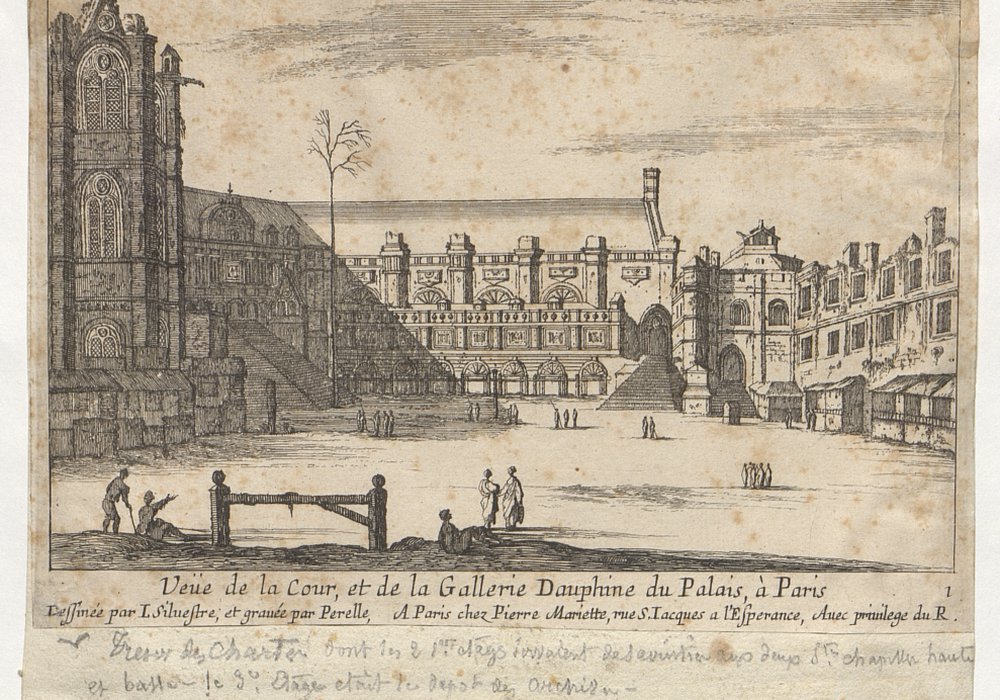 Veüe de la Cour, et de la Gallerie Dauphine du Palais, à Paris 1
Dessinée par I. Siluestre, et grauée par Perelle, A Paris chez Pierre Mariette, rue S. Iacques a l'Esperance, Auec priuilege du R.
Tresor des Chartes dont les 2 1ers étages servaient de sacristies aux deux Stes chapelles haute
et basse le 3e étage était le depot des Archives